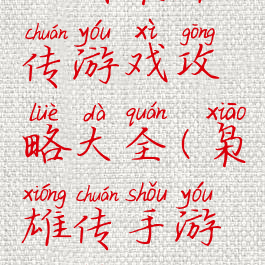 chuán yóu xì gōng
传游戏攻
lüè dà quán xiāo
略大全(枭
xióng chuán shǒu yóu
雄传手游